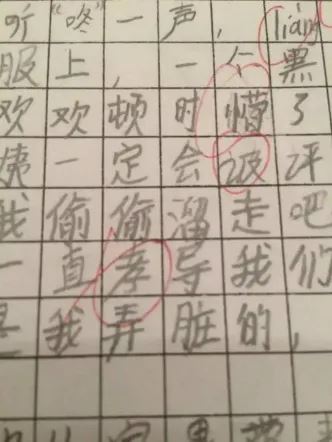 听“咚”一声，liáng
服上，一个黑
欢欢顿时懵了
姨一定会汲评
我偷偷溜走吧
一直孝导我们
是我弄脏的，